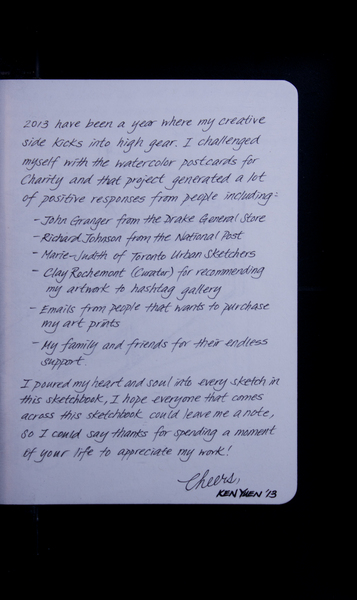 2013 have been a year where my creative
side kicks into high gear. I challenged
myself with the watercolor postcards for
Charity and that project generated a lot
of positive responses from people including:
- John Granger from the Drake General Store
- Richard Johnson from the National Post
- Marie-Judith of Toronto Urban Sketchers
- Clay Rochemont (Curator) for recommending
my artwork to hashtag gallery
- Emails from people that wants to purchase
my art prints
- My family and friends for their endless
support.
I poured my heart and soul into every sketch in
this sketchbook, I hope everyone that comes
across this sketchbook could leave me a note,
so I could say thanks for spending a moment
of your life to appreciate my work!
Cheers,
KEN YUEN '13